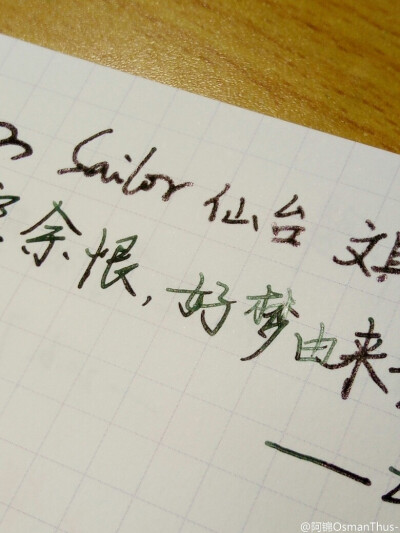 Sailor 仙台
余恨,好梦由来
——
@阿锦OsmanThus-